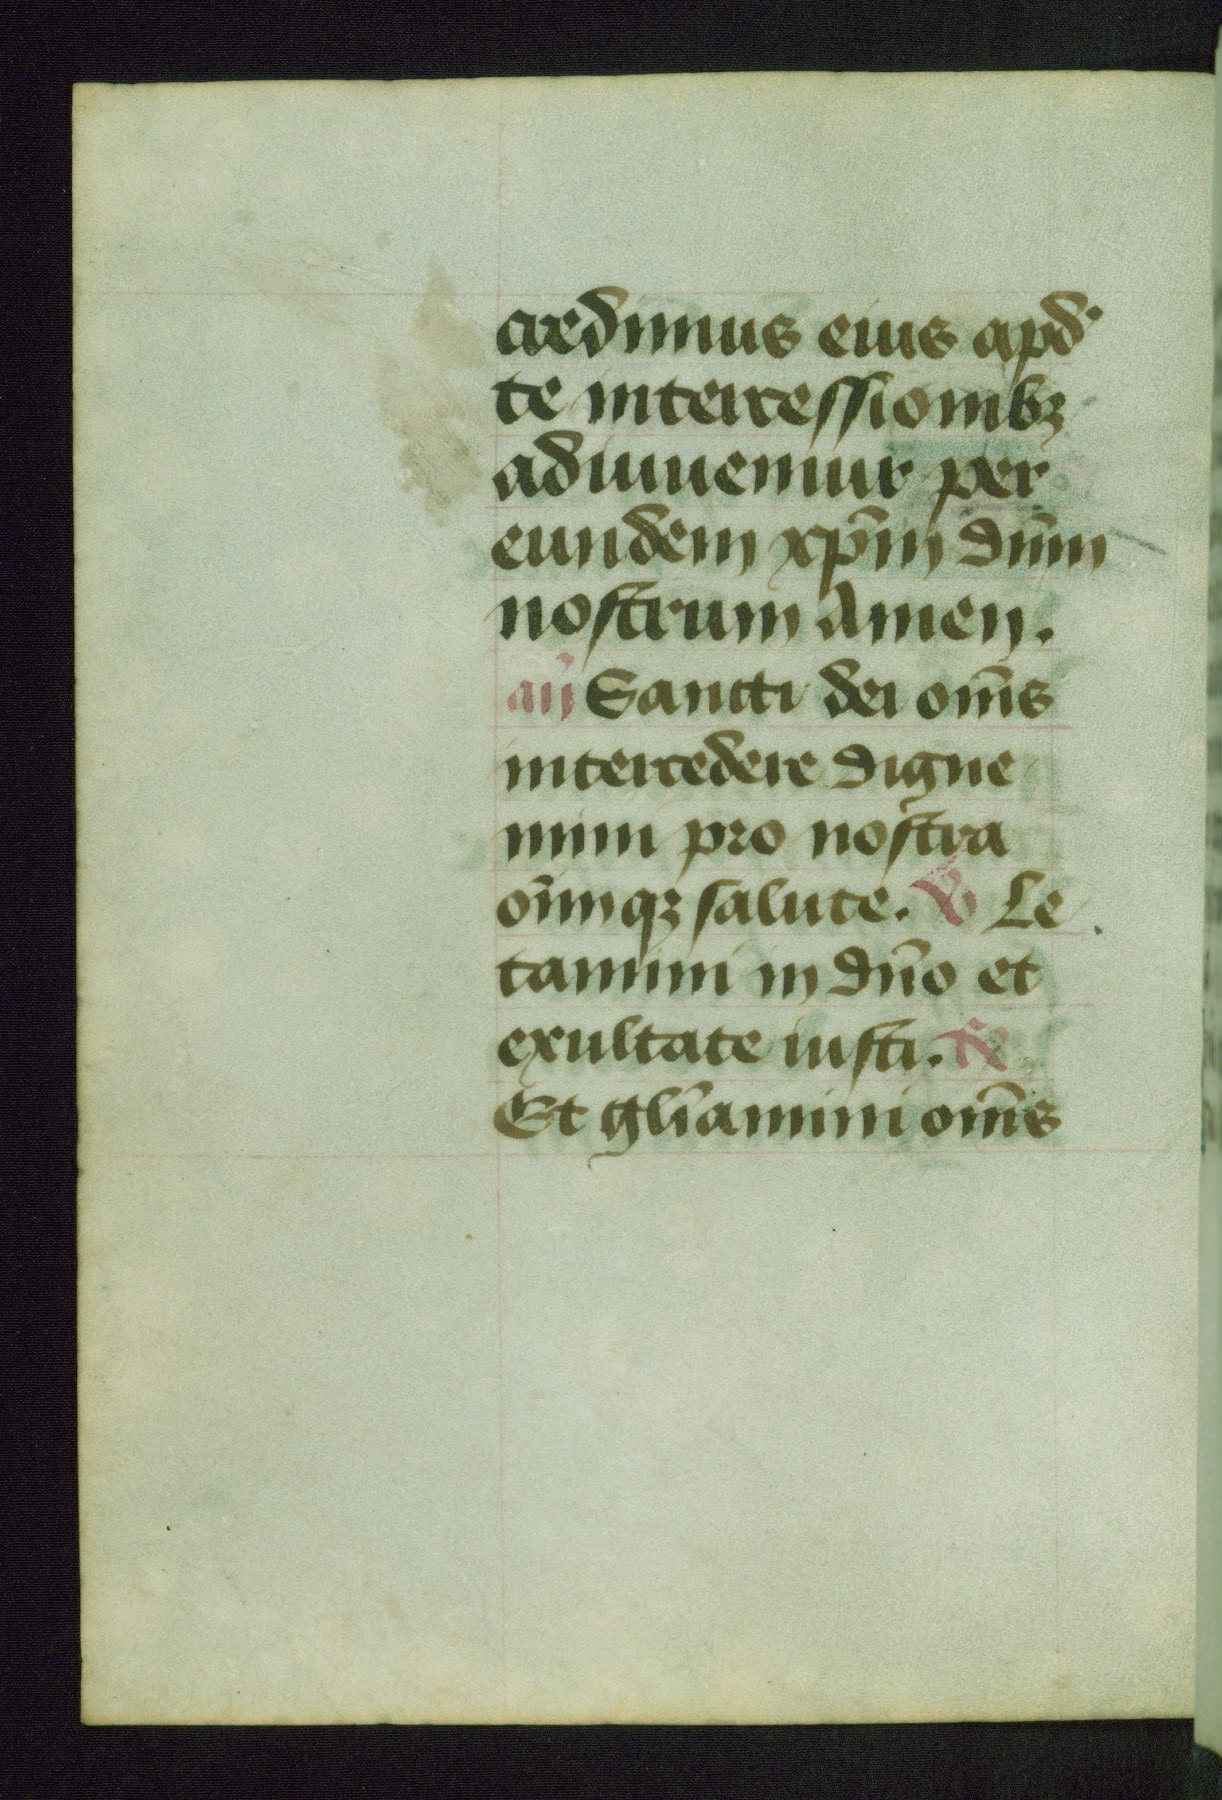 credimus eius apd'
te intercessionibꝫ
adiuuemur per
eundem xp̄m dn̄m
nostrum Amen.
an̄ Sancti dei om̄s
intercedere digne
mini pro nostra
om̄iu̅qꝫ salute. ℣ Le
tamini in dn̄o et
exultate iusti. ℟
Et gl̄iamini om̄s